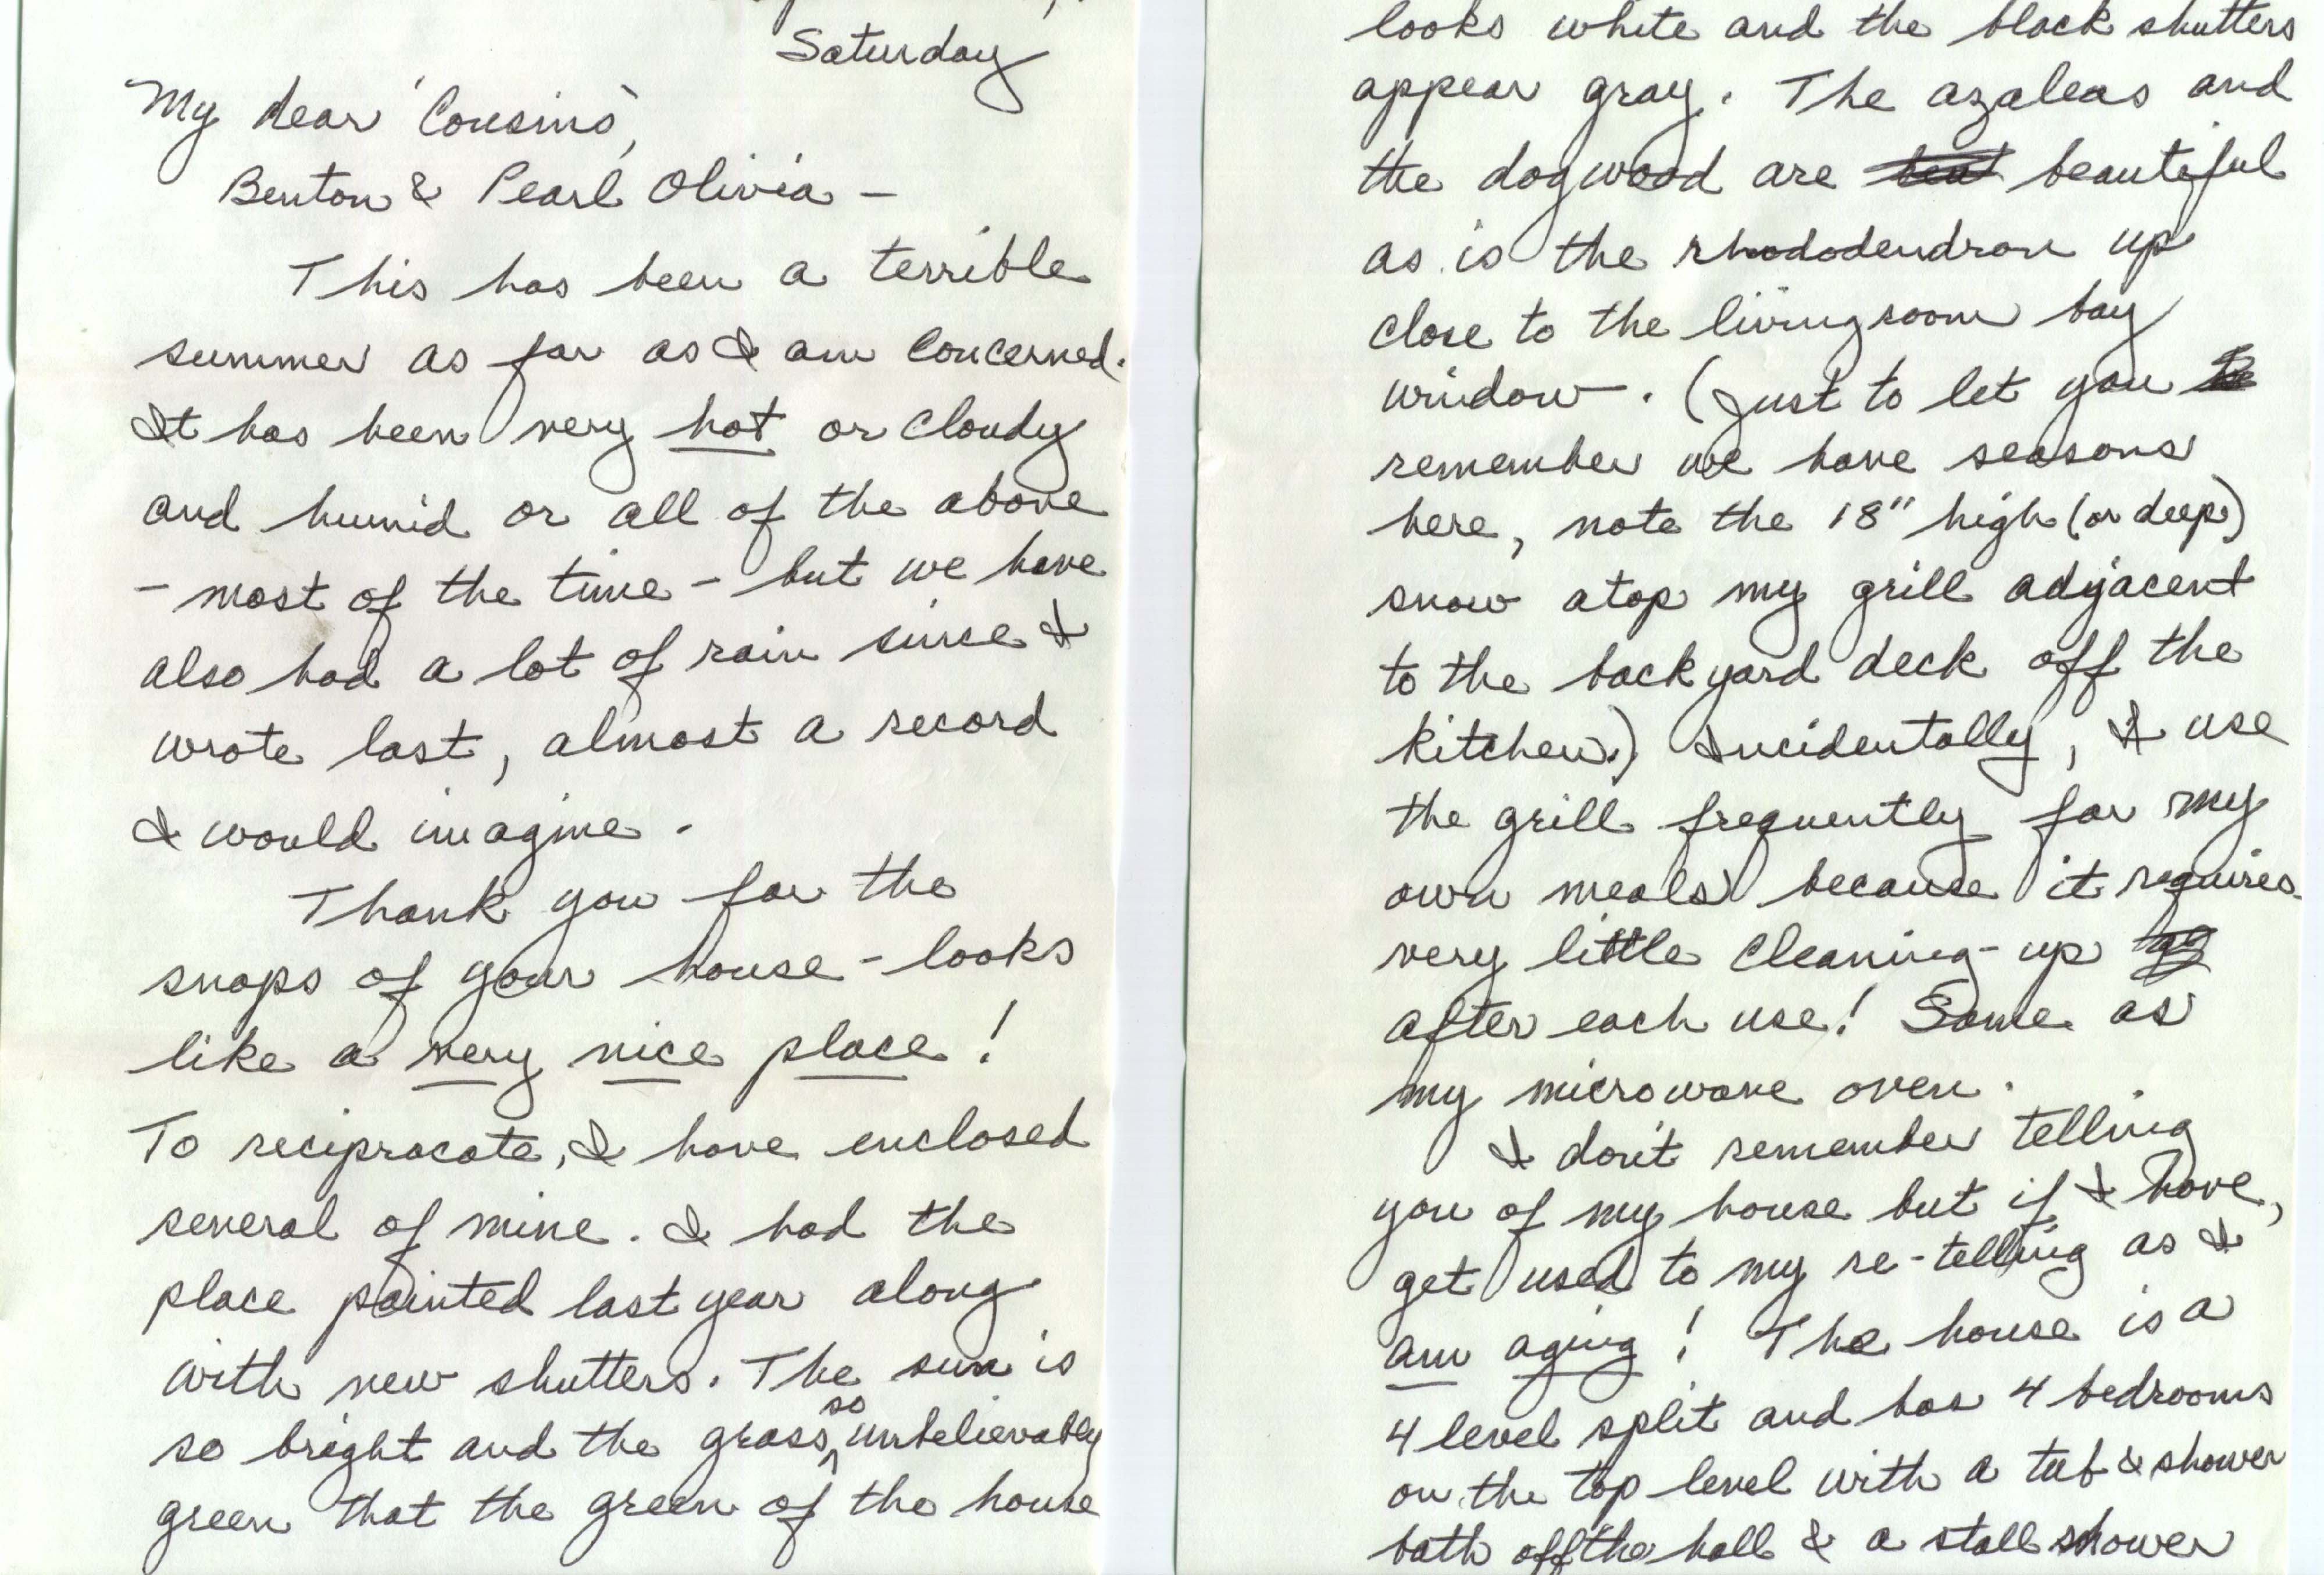 Saturday
My dear 'Cousins',
Benton & Pearl Olivia –
This has been a terrible
summer as far as I am concerned.
It has been very hot or cloudy
and humid or all of the above
– most of the time – but we have
also had a lot of rain since I
wrote last, almost a record
I would imagine.
Thank you for the
snaps of your house – looks
like a very nice place!
To reciprocate, I have enclosed
several of mine. I had the
place painted last year along
with new shutters. The sun is
so bright and the grass so unbelievably
green that the green of the house
looks white and the black shutters
appear gray. The azaleas and
the dogwood are beautiful
as is the rhododendron up
close to the livingroom bay
window. (Just to let you
remember we have seasons
here, note the 18" high (or deep)
snow atop my grill adjacent
to the backyard deck off the
kitchen.) Incidentally, I use
the grill frequently for my
own meals because it requires
very little cleaning-up
after each use! Same as
my microwave oven.
I don't remember telling
you of my house but if I have,
get used to my re-telling as I
am aging! The house is a
4 level split and has 4 bedrooms
on the top level with a tub & shower
bath off the hall & a stall shower